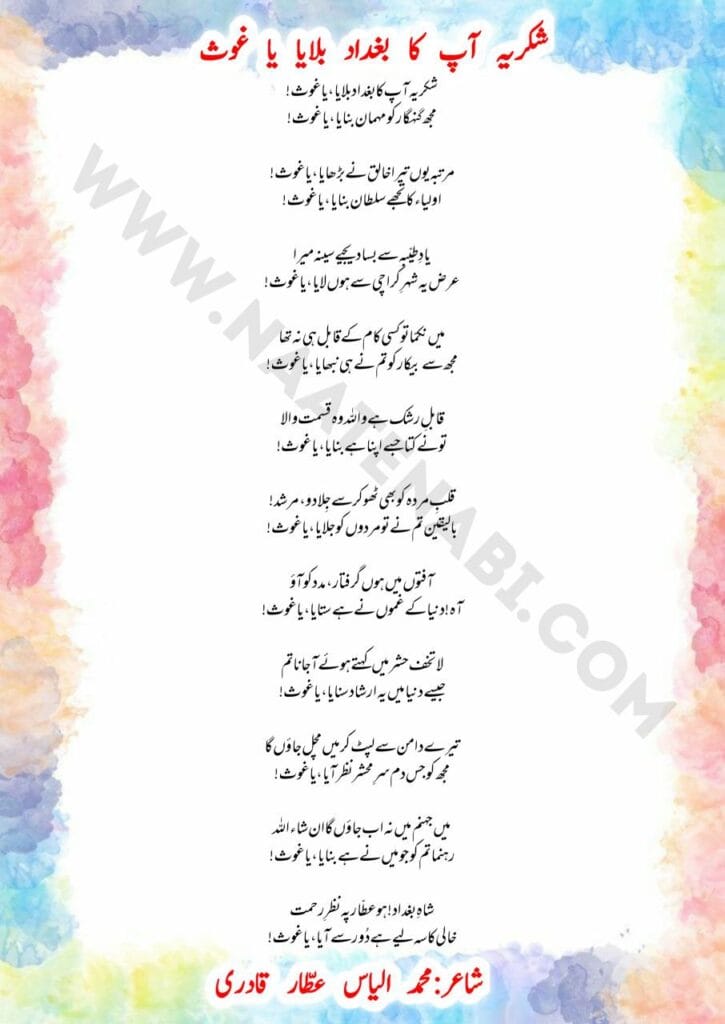 شکریہ آپ کا بغداد بلایا یا غوث
شکریہ آپ کا بغداد بلایا، یا غوث!
مجھ گنہگار کو مہمان بنایا، یا غوث!
مرتبہ یوں تیرا خالق نے بڑھایا، یا غوث!
اولیاء کا تجھے سلطان بنایا، یا غوث!
یادِ طیّبہ سے بسا دیجیے سینہ میرا
عرض یہ شہرِ کراچی سے ہوں لایا، یا غوث!
میں نکما تو کسی کام کے قابل ہی نہ تھا
مجھ سے بیکار کو تم نے ہی نبھایا، یا غوث!
قابلِ رشک ہے واللہ وہ قسمت والا
تو نے کتا جسے اپنا ہے بنایا، یا غوث!
قلبِ مردہ کو بھی ٹھوکر سے جِلا دو، مرشد!
بالیقین تم نے تو مردوں کو جلایا، یا غوث!
آفتوں میں ہوں گرفتار، مدد کو آؤ
آہ! دنیا کے غموں نے ہے ستایا، یا غوث!
لا تخف حشر میں کہتے ہوئے آ جانا تم
جیسے دنیا میں یہ ارشاد سنایا، یا غوث!
تیرے دامن سے لپٹ کر میں مچل جاؤں گا
مجھ کو جس دم سرِ محشر نظر آیا، یا غوث!
میں جہنم میں نہ اب جاؤں گا ان شاء اللہ
رہنما تم کو جو میں نے ہے بنایا، یا غوث!
شاہِ بغداد! ہو عطّار پہ نظرِ رحمت
خالی کاسہ لیے ہے دُور سے آیا، یا غوث!
شاعر: محمد الیاس عطّار قادری
WWW.NAATENABI.COM